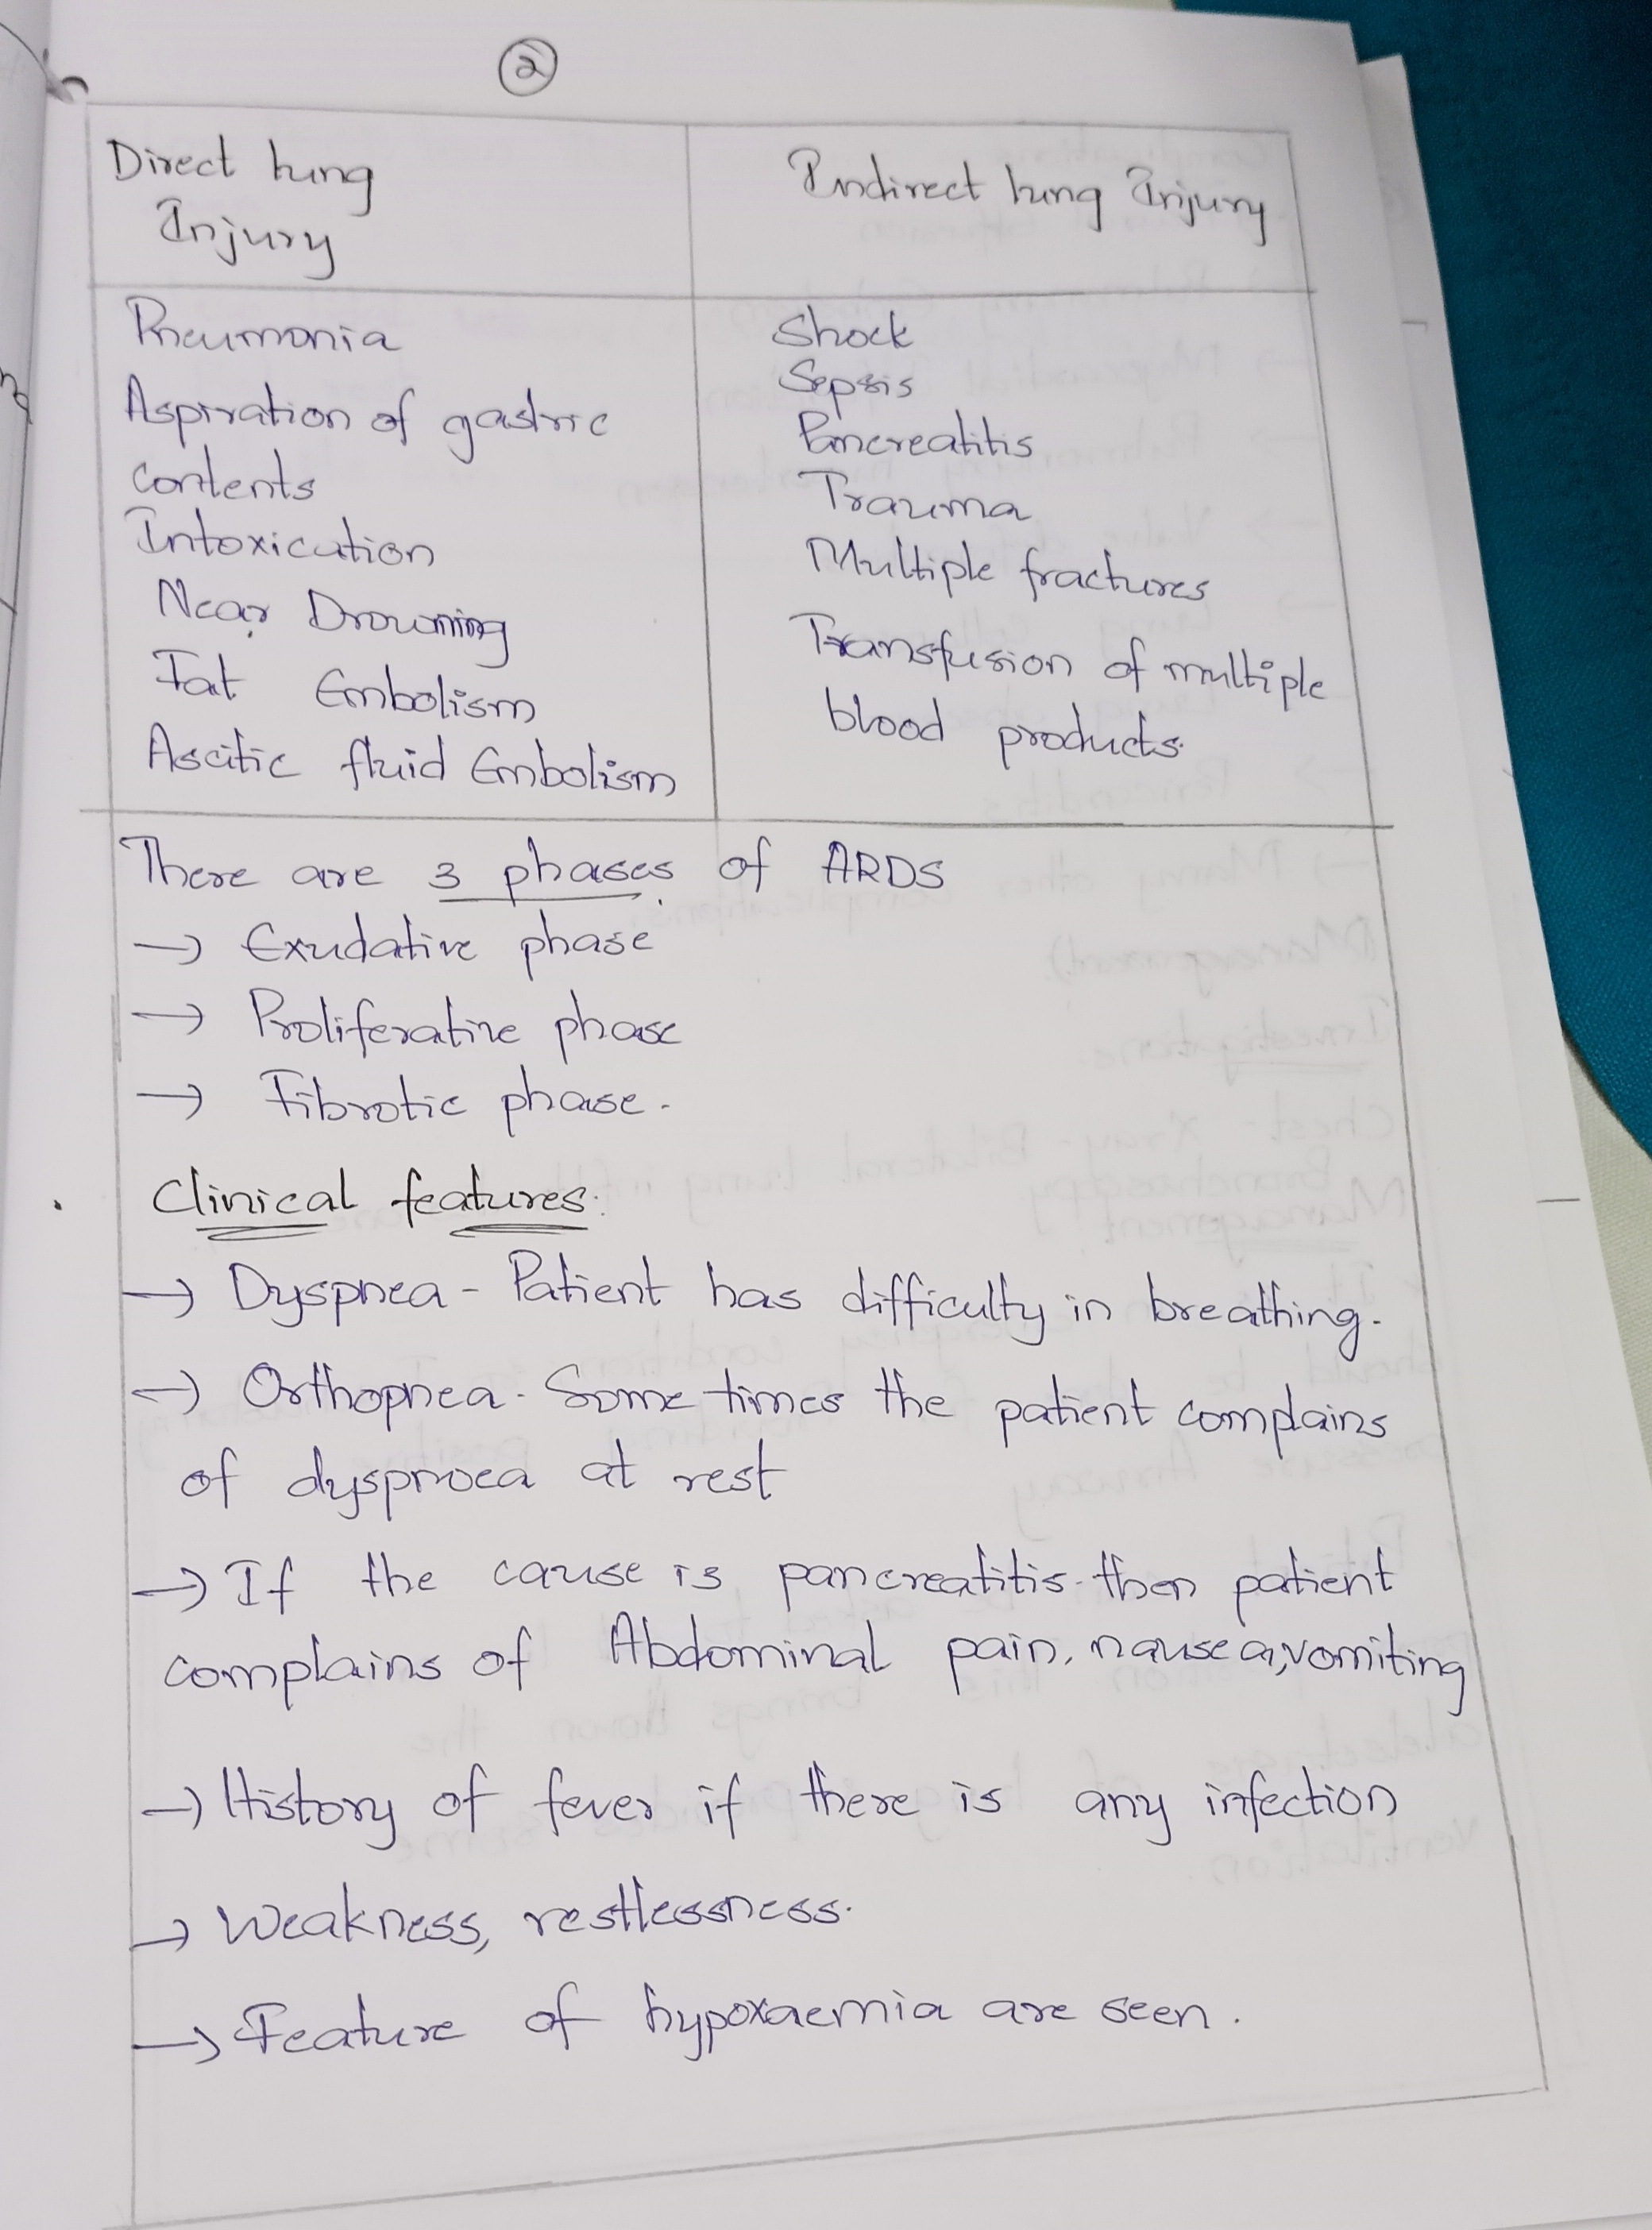 2
Direct lung
Injury
Indirect lung Injury
Pneumonia
Aspiration of gastric
contents
Intoxication
Near Drowning
Fat Embolism
Ascitic fluid Embolism
Shock
Sepsis
Pancreatitis
Trauma
Multiple fractures
Transfusion of multiple
blood products.
There are 3 phases of ARDS
→ Exudative phase
→ Proliferative phase
→ Fibrotic phase.
Clinical features:
→ Dyspnea - Patient has difficulty in breathing.
→ Orthopnea - Some times the patient complains
of dyspnoea at rest
→ If the cause is pancreatitis - then patient
complains of Abdominal pain, nausea, vomiting
→ History of fever if there is any infection
→ Weakness, restlessness.
→ Feature of hypoxaemia are seen.